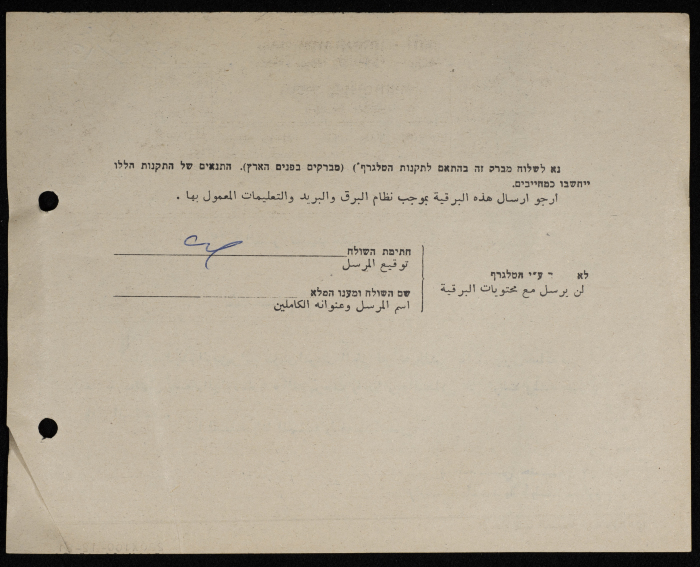 נא לשלוח מברק זה בהתאם לתקנות הטלגרף*) (מברקים בפנים הארץ). התנאים של התקנות הללו
ייחשבו כמחייבים.
ارجو ارسال هذه البرقية بموجب نظام البرق والبريد والتعليمات المعمول بها .
חתימת השולח
توقيع المرسل
שם השולח ומענו המלא
اسم المرسل وعنوانه الكاملين
לא ־ ע״י הטלגרף
لن يرسل مع محتويات البرقية